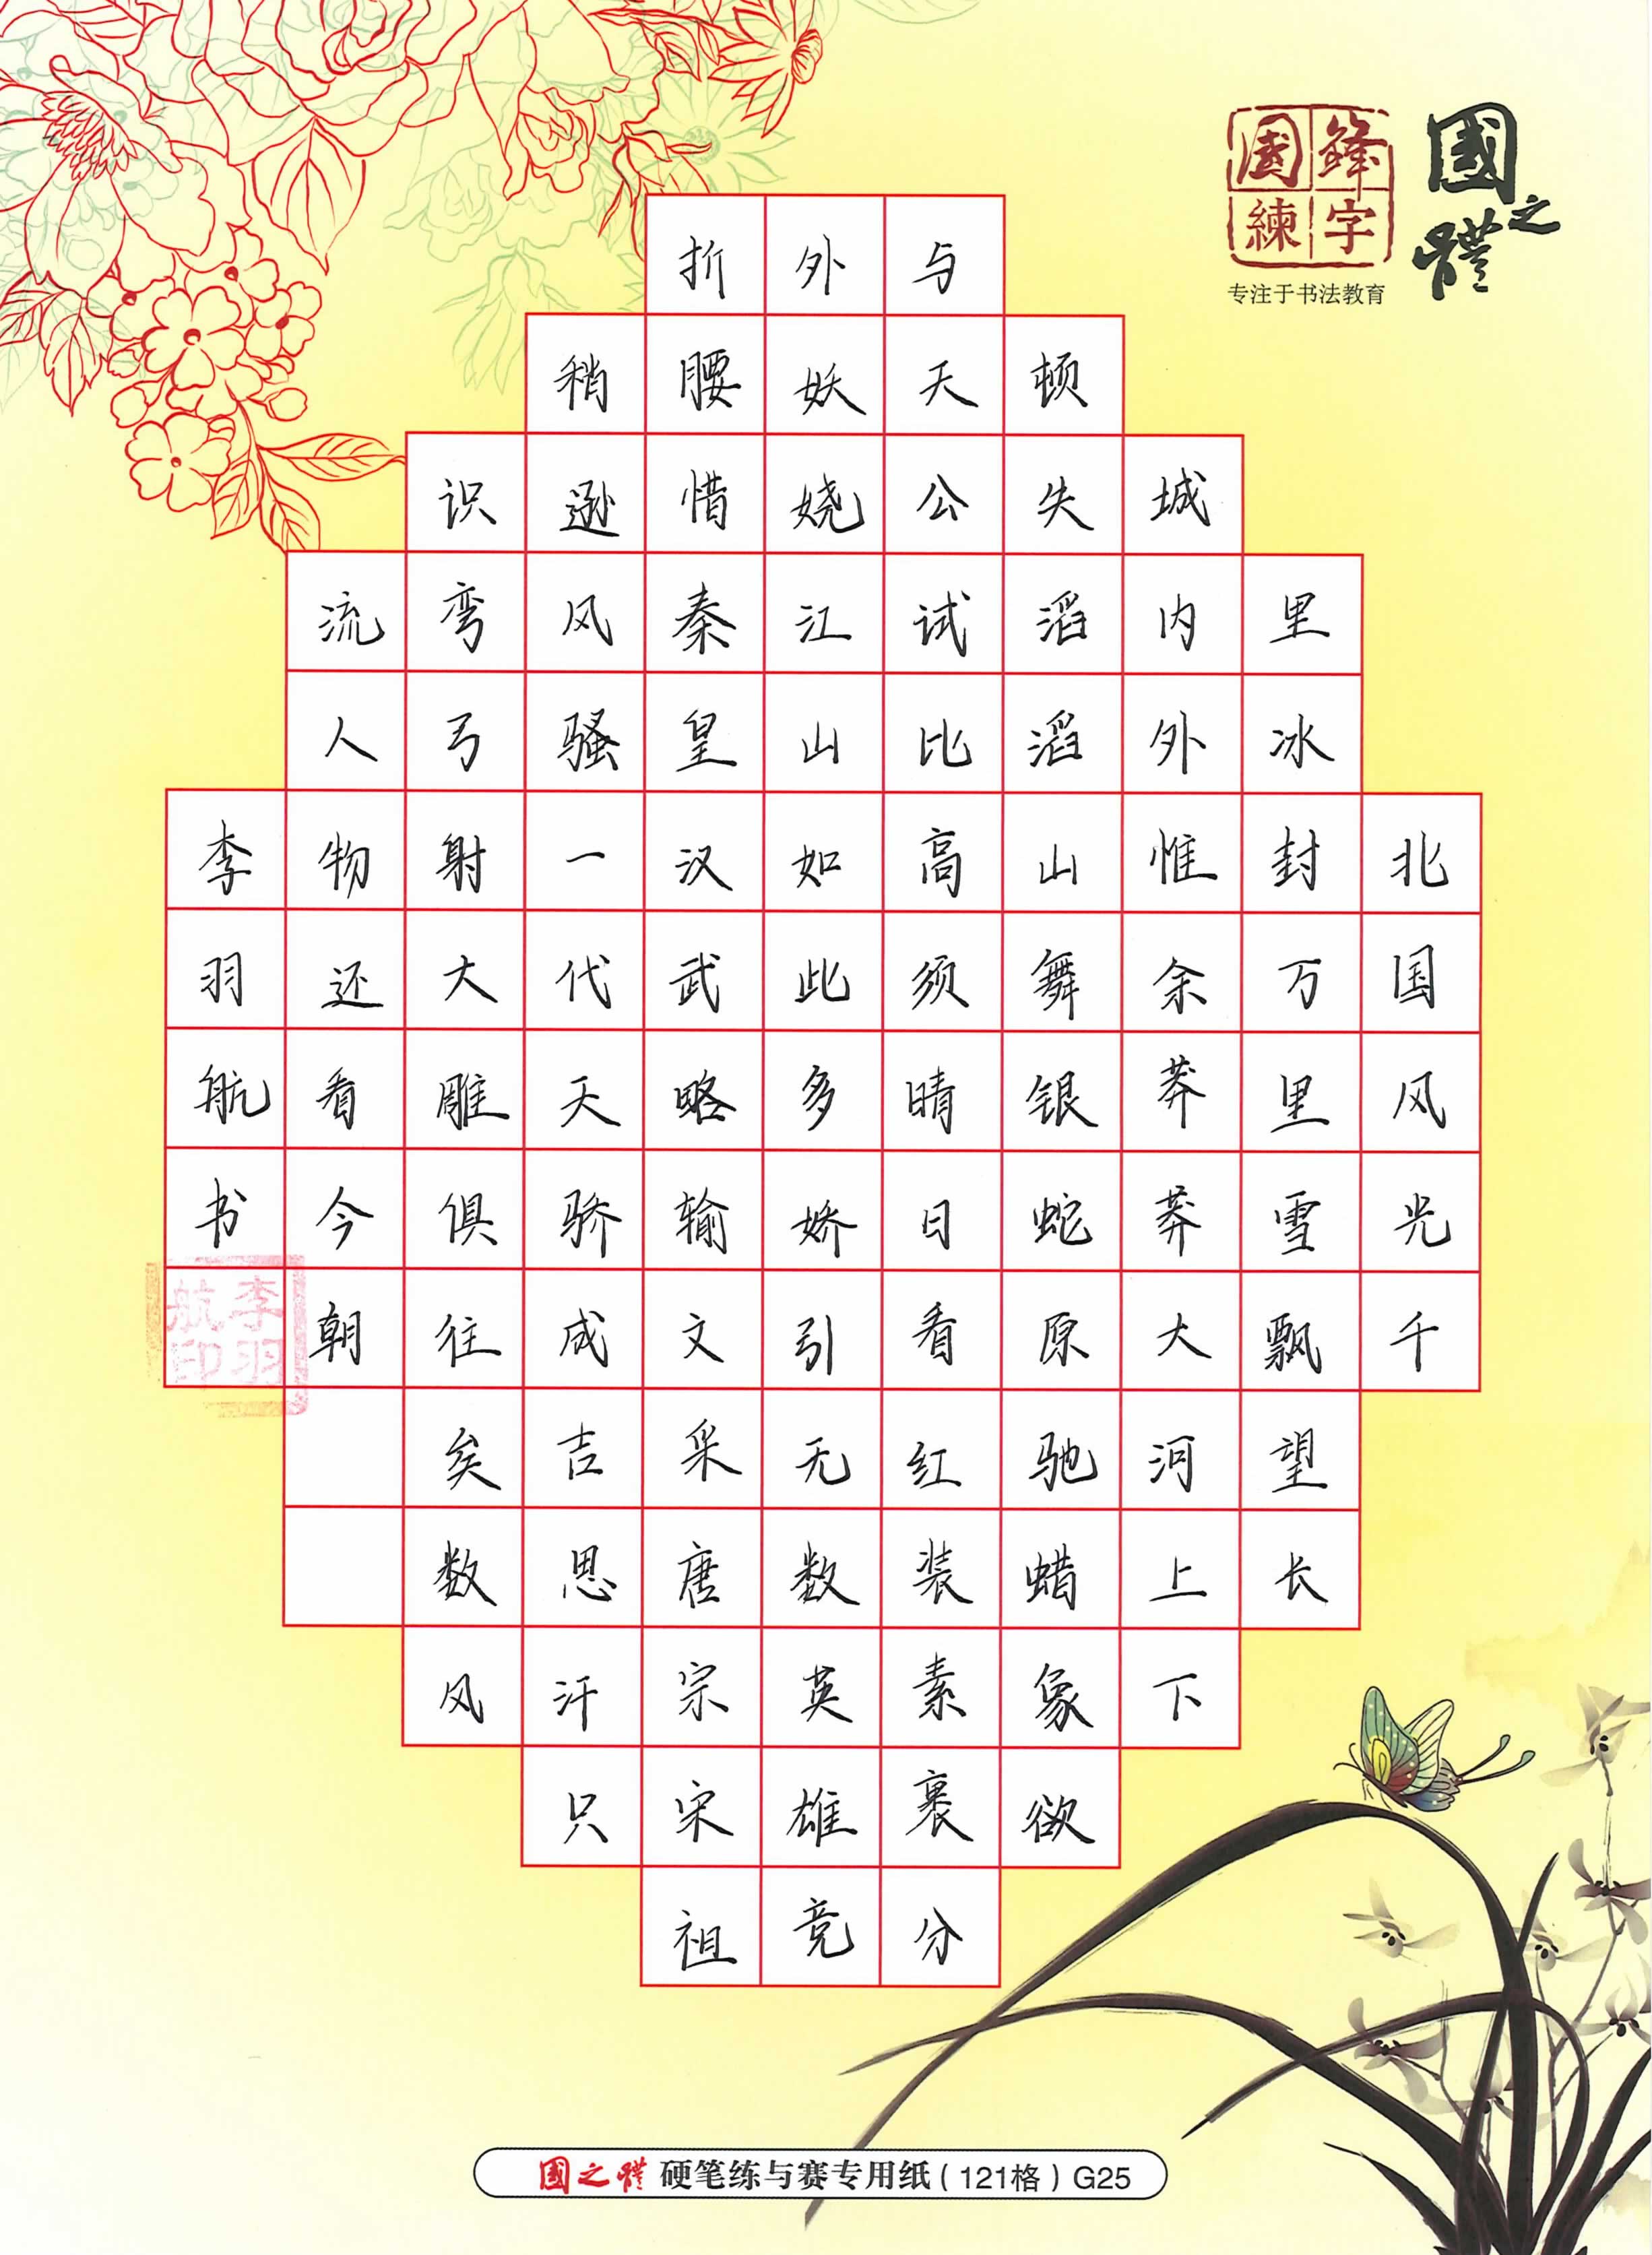 國鋒練字
专注于书法教育
國之體
北国风光千
里冰封万里雪飘望长
城内外惟余莽莽大河上下
顿失滔滔山舞银蛇原驰蜡象欲
与天公试比高须晴日看红装素裹分
外妖娆江山如此多娇引无数英雄竞
折腰惜秦皇汉武略输文采唐宗宋祖
稍逊风骚一代天骄成吉思汗只
识弯弓射大雕俱往矣数风
流人物还看今朝
李羽航书
李羽航印
國之體 硬笔练与赛专用纸（121格）G25